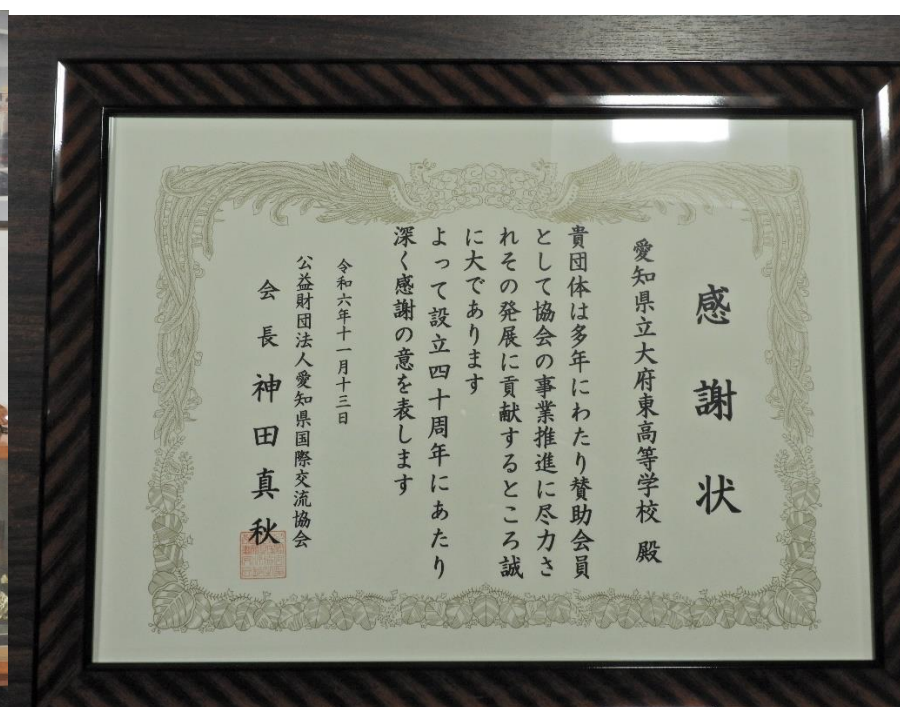 感謝状
愛知県立大府東高等学校 殿
貴団体は多年にわたり賛助会員
として協会の事業推進に尽力さ
れその発展に貢献するところ誠
に大であります
よって設立四十周年にあたり
深く感謝の意を表します
令和六年十一月十三日
公益財団法人愛知県国際交流協会
会長 神田真秋